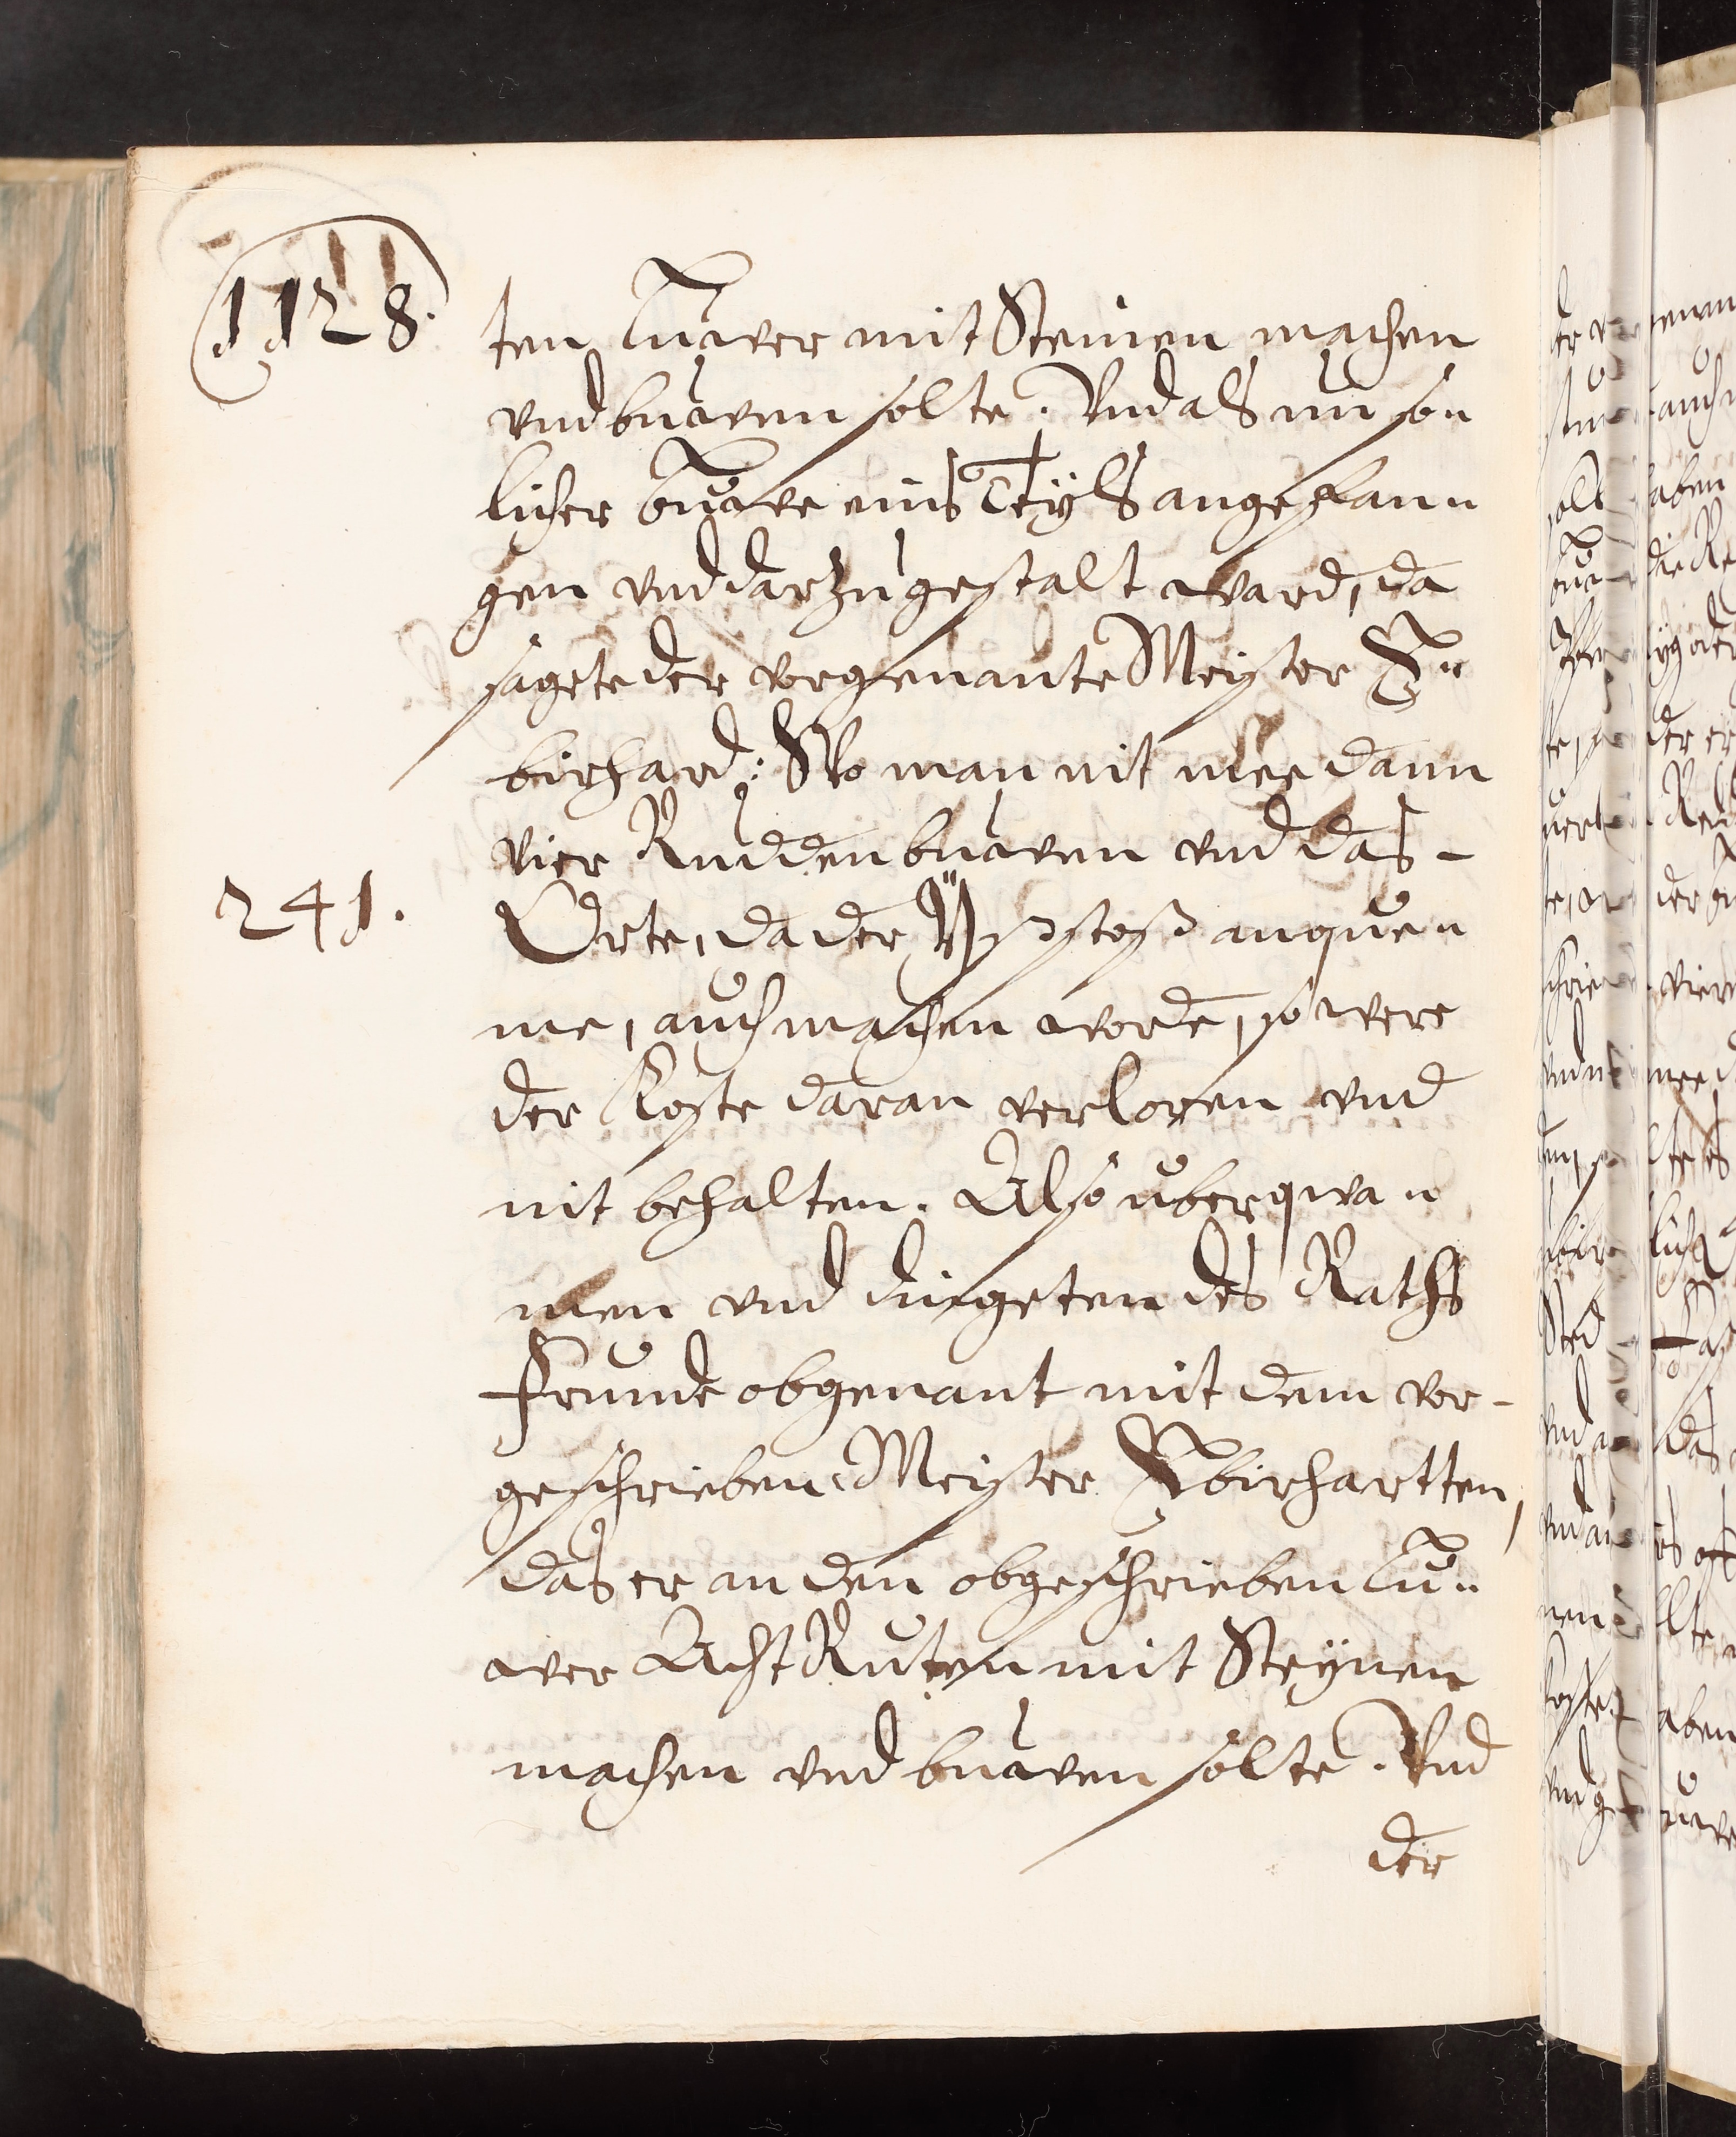 1128.
ten Tuwer mit Steinen machen
vnd buwen solte. Vnd als nu so„
licher Buwe eins Teyls angefan„
gen vnd darzu gestalt ward, da
sagete der vorgenante Meister E„
birhard: Wo man nit mee dann
vier Rudden buwen vnd das -
241.
Orte, da der Vßstoß anque„
me, auch machen worde, so were
der Koste daran verloren vnd
nit behalten. Also uberqwa„
men vnd dingeten des Raths
Frunde obgenant mit dem vor-
geschrieben Meister Ebirhartten,
das er an den obgeschrieben Tu„
wer Acht Ruten mit Steynen
machen vnd buwen solte. Vnd
der